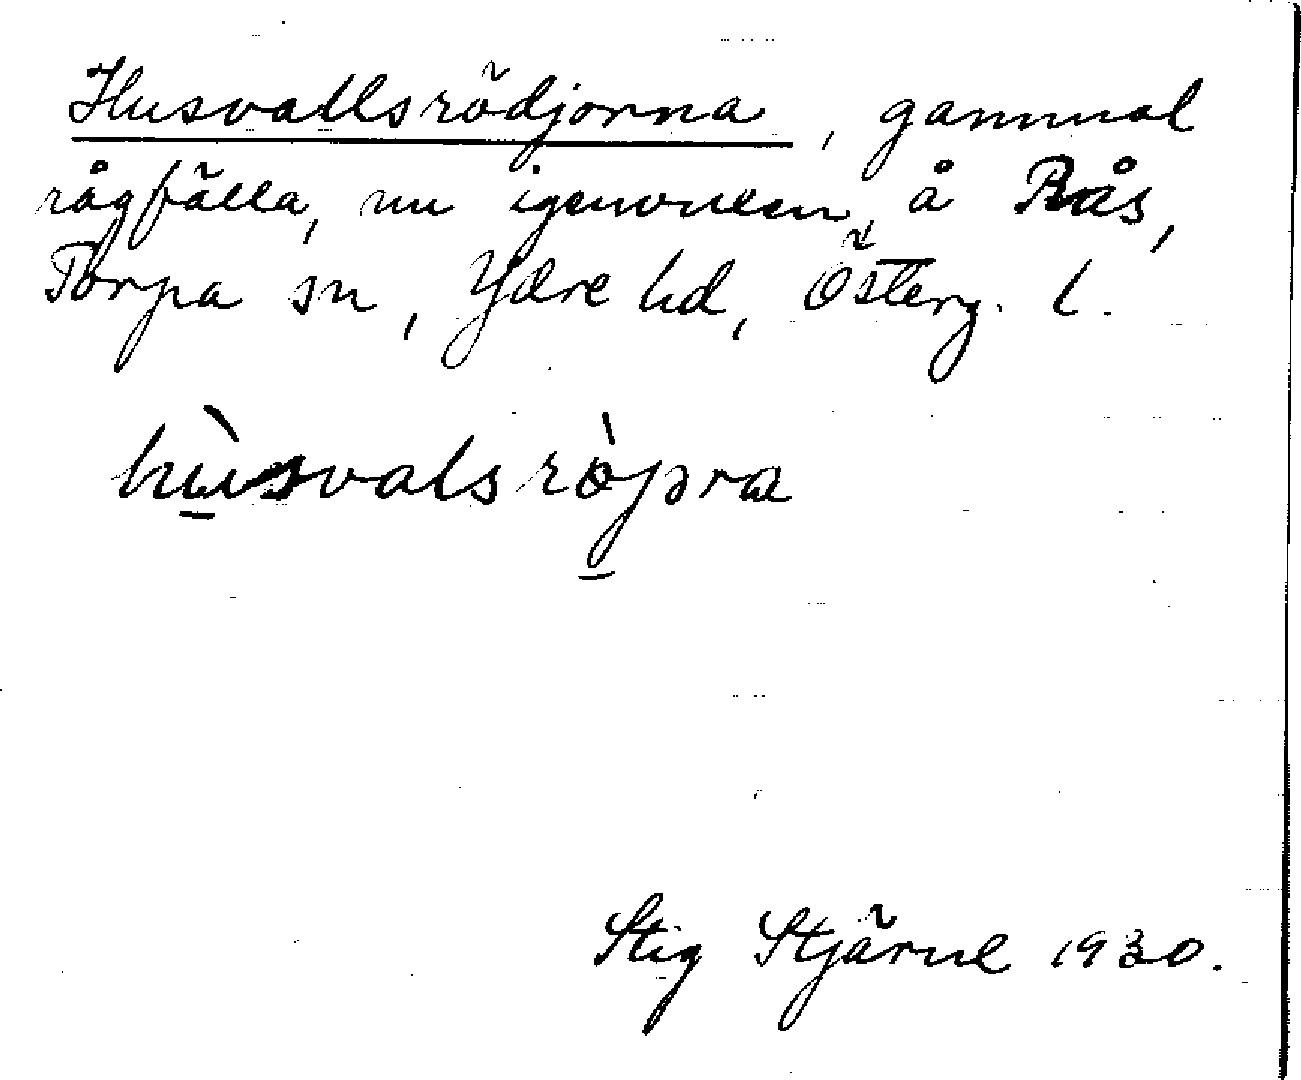 Husvallsrödjorna, gammal
rågfälla, nu igenvuxen, å Rås,
Torpa sn, Ydre hd, Österg. l.
hùsvalsròjora
Stig Stjärne 1930.